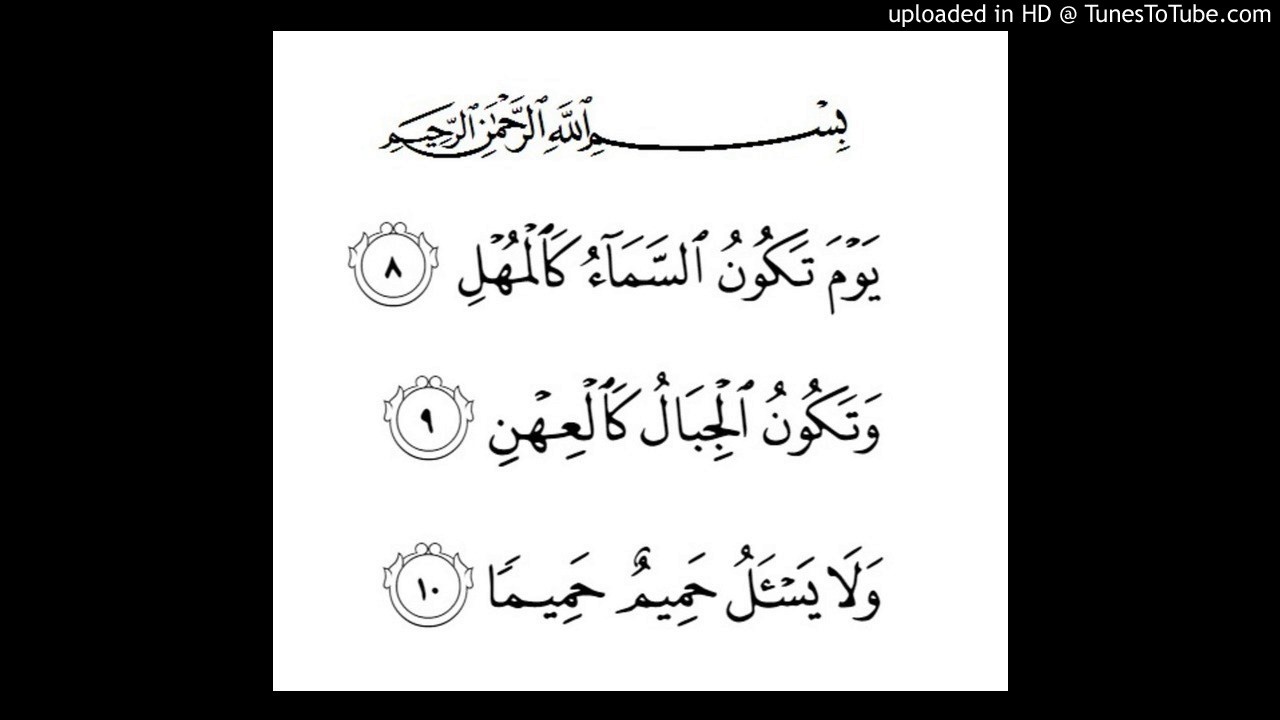 uploaded in HD @ TunesToTube.com
بِسْمِ ٱللَّهِ ٱلرَّحْمَٰنِ ٱلرَّحِيمِ
يَوْمَ تَكُونُ ٱلسَّمَآءُ كَٱلْمُهْلِ ٨
وَتَكُونُ ٱلْجِبَالُ كَٱلْعِهْنِ ٩
وَلَا يَسْـَٔلُ حَمِيمٌ حَمِيمًا ١٠